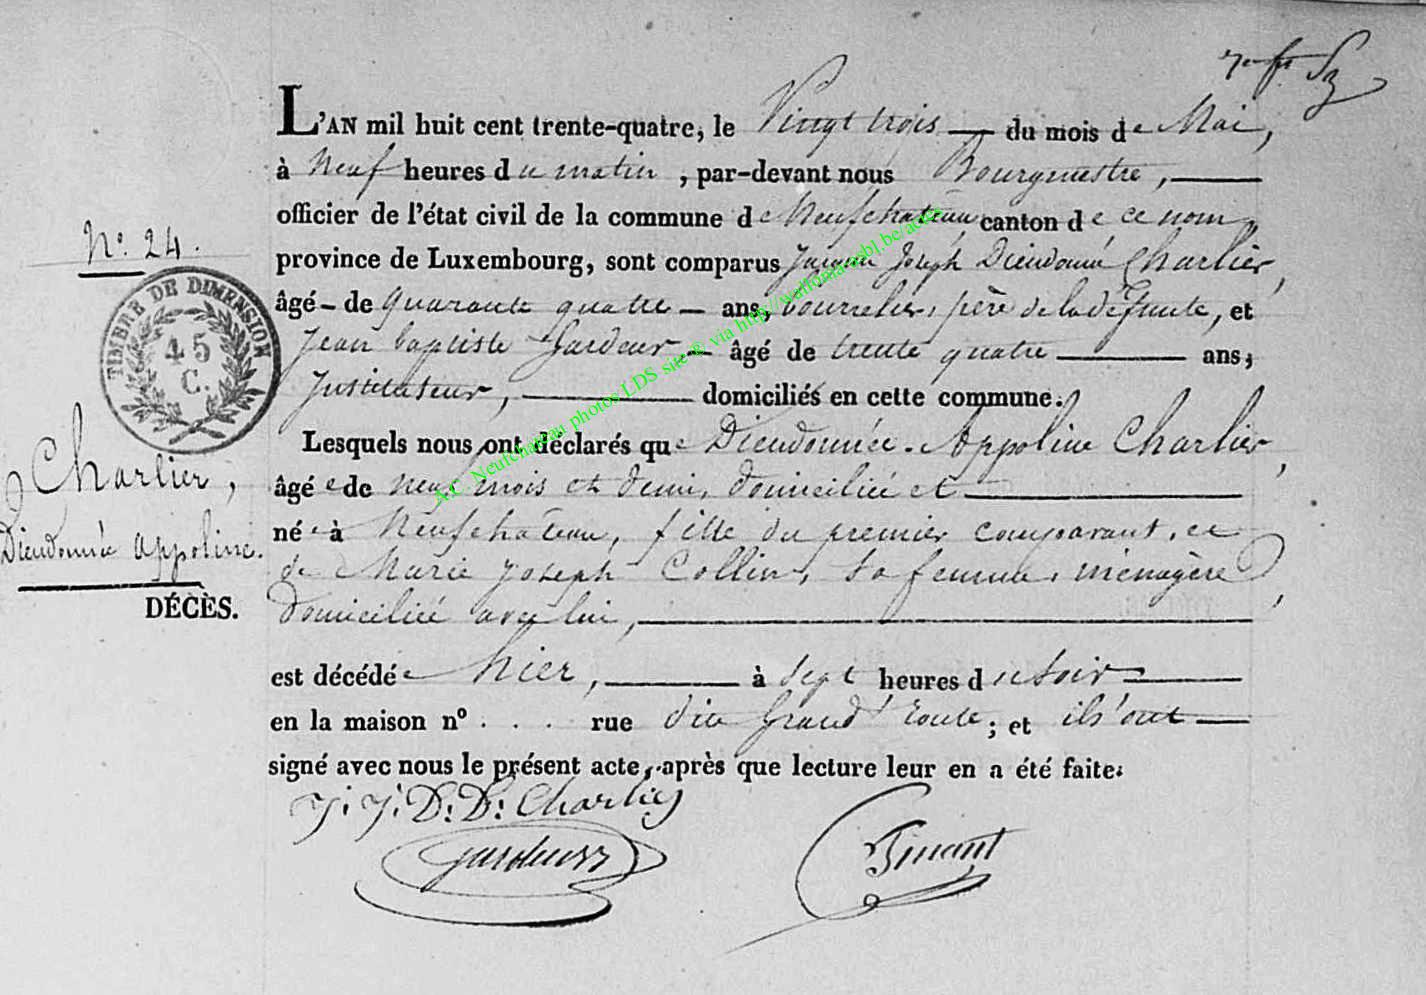 7e ft Sz
L'AN mil huit cent trente-quatre, le Vingt trois — du mois de Mai,
à Neuf heures du matin, par-devant nous Bourgmestre, —
officier de l'état civil de la commune de Neufchateau canton de ce nom,
province de Luxembourg, sont comparus Jacques Joseph Dieudonné Charlier,
âgé - de quarante quatre — ans, bourrelier, père de la défunte, et
Jean baptiste Gardeur — âgé de trente quatre — ans,
Instituteur, — domiciliés en cette commune.
Lesquels nous ont déclarés que Dieudonnée Appoline Charlier,
âgée de neuf mois et demi, domiciliée et —
née à Neufchateau, fille du premier comparant, et
de Marie Joseph Collin, sa femme, ménagère
domiciliée avec lui, —
est décédée hier, — à sept heures du soir —
en la maison n° . . . rue dite Grand'route; et ils ont —
signé avec nous le présent acte, après que lecture leur en a été faite.
J. J. D. D. Charlier
Gardeur
N° 24.
TIMBRE DE DIMENSION
45
C.
Charlier,
Dieudonnée Appoline.
DÉCÈS.
A.C. Neufchateau photos LDS site © via http://wallonia-asbl.be/actes